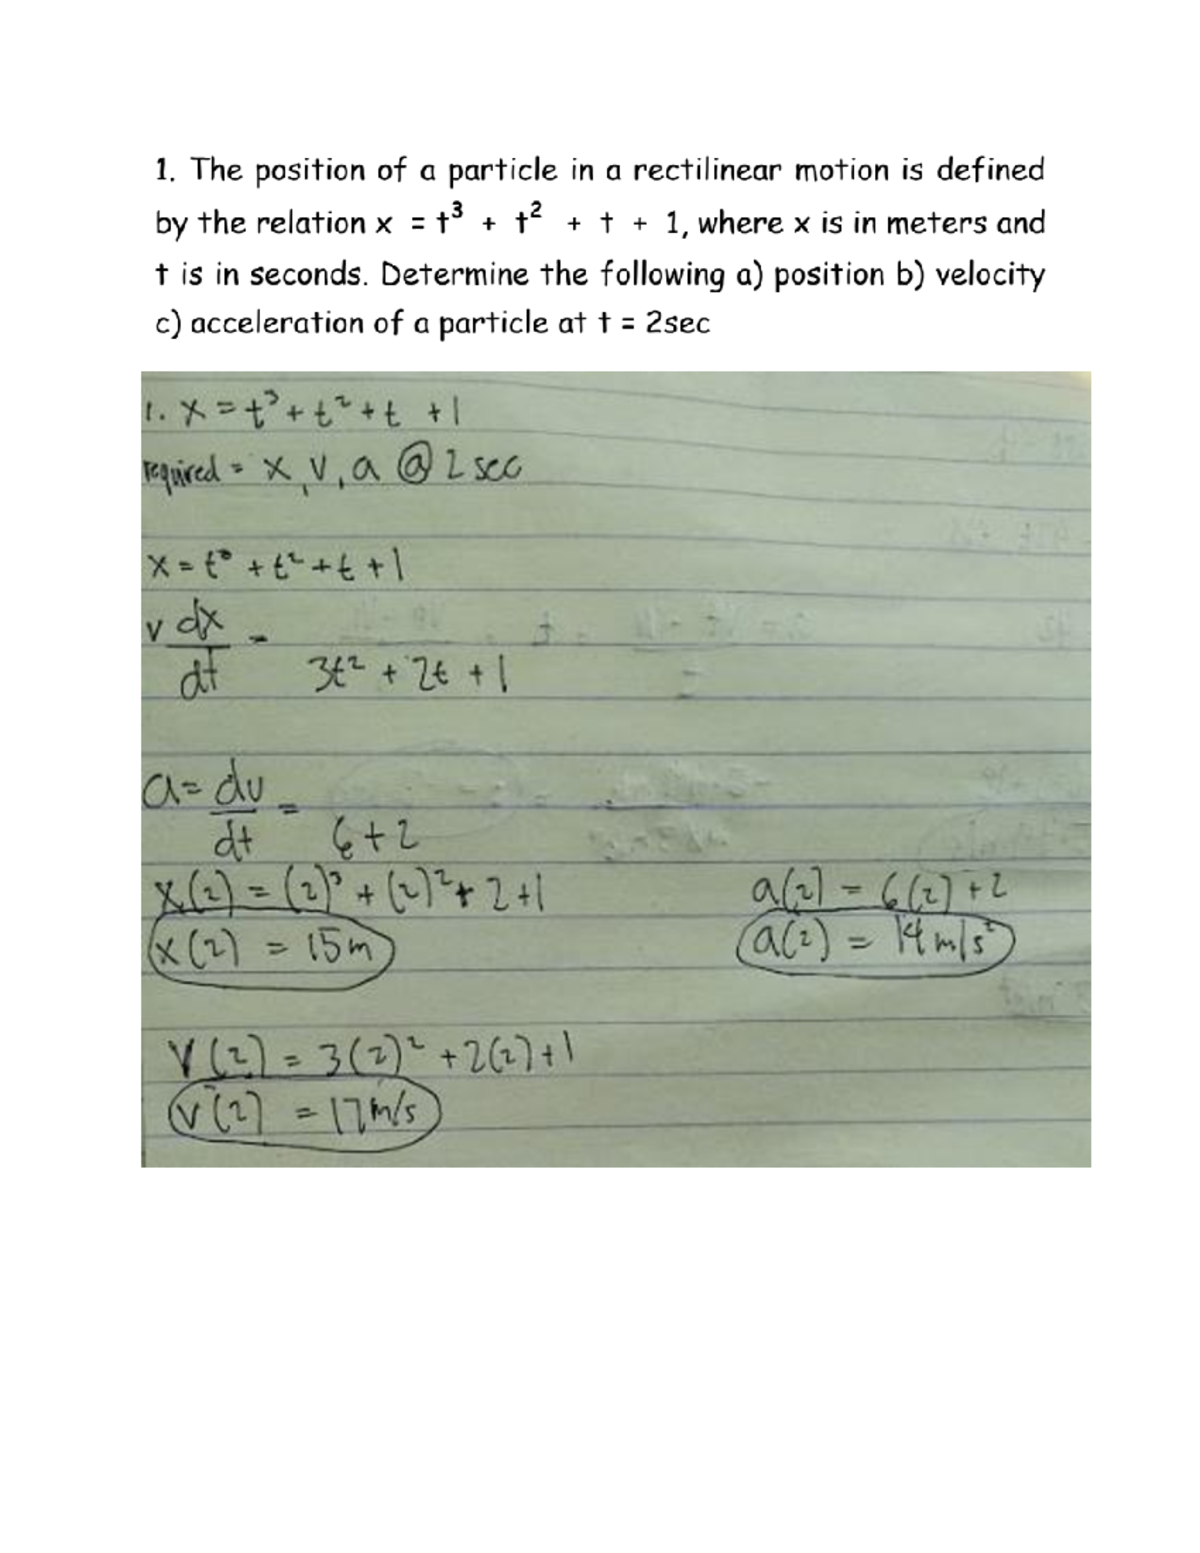 1. The position of a particle in a rectilinear motion is defined
by the relation x = t³ + t² + t + 1, where x is in meters and
t is in seconds. Determine the following a) position b) velocity
c) acceleration of a particle at t = 2sec
1. x = t³ + t² + t + 1
required = x, v, a @ 2 sec
x = t³ + t² + t + 1
v dx/dt = 3t² + 2t + 1
a = dv/dt = 6t + 2
x(2) = (2)³ + (2)² + 2 + 1
x(2) = 15m
a(2) = 6(2) + 2
a(2) = 14 m/s²
v(2) = 3(2)² + 2(2) + 1
v(2) = 17 m/s